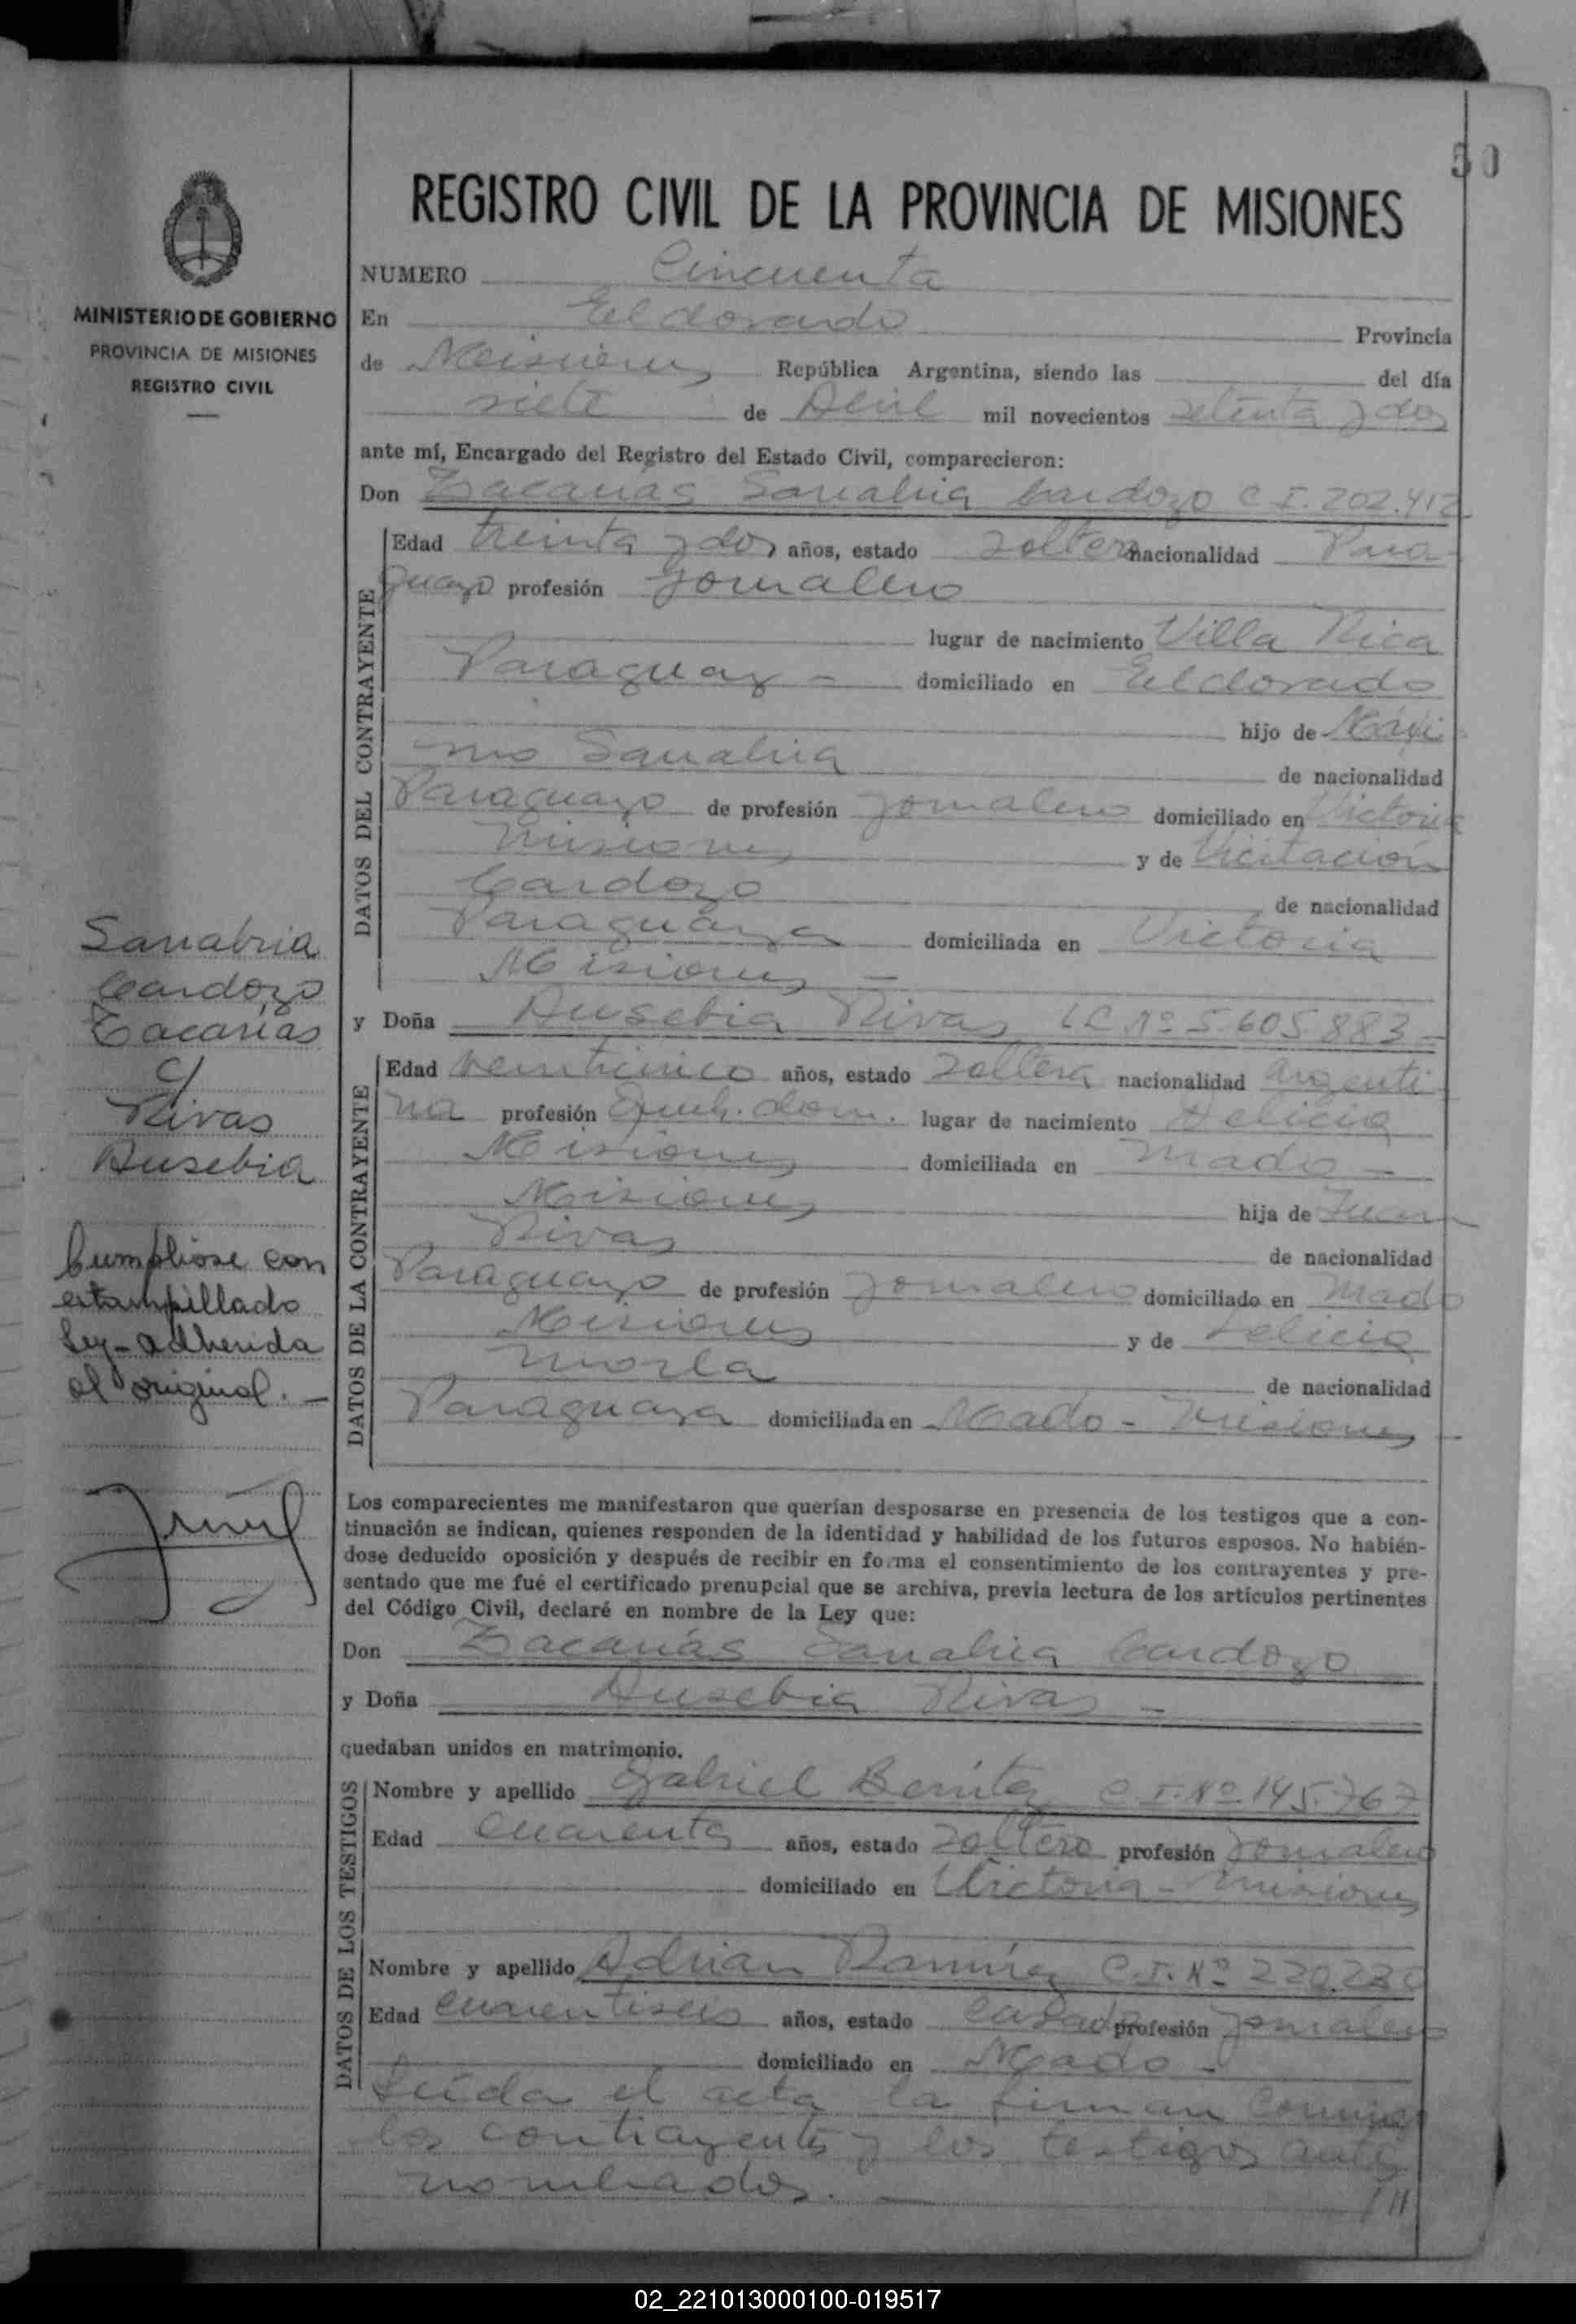 50
REGISTRO CIVIL DE LA PROVINCIA DE MISIONES
MINISTERIO DE GOBIERNO
PROVINCIA DE MISIONES
REGISTRO CIVIL
NUMERO Cincuenta
En Eldorado Provincia
de Misiones República Argentina, siendo las del día
siete de Abril mil novecientos setenta y dos
ante mí, Encargado del Registro del Estado Civil, comparecieron:
Don Zacarías Sanabria Cardozo C.I. 202.412
DATOS DEL CONTRAYENTE
Edad treinta y dos años, estado soltero nacionalidad Para-
guayo profesión jornalero
lugar de nacimiento Villa Rica
Paraguay - domiciliado en Eldorado
hijo de Máxi-
mo Sanabria de nacionalidad
Paraguayo de profesión jornalero domiciliado en Victoria
Misiones y de Vicitación
Cardozo de nacionalidad
Paraguaya domiciliada en Victoria
Misiones -
y Doña Ausebia Rivas LC Nº 5.605.883-
DATOS DE LA CONTRAYENTE
Edad veinticinco años, estado soltera nacionalidad argenti-
na profesión Queh. dom. lugar de nacimiento Delicia
Misiones domiciliada en Mado -
Misiones hija de Juan
Rivas de nacionalidad
Paraguayo de profesión jornalero domiciliado en Mado
Misiones y de Felicia
Morla de nacionalidad
Paraguaya domiciliada en Mado - Misiones
Sanabria
Cardozo
Zacarías
c/
Rivas
Ausebia
Cumpliose con
estampillado
Ley- adherida
al original. -
Los comparecientes me manifestaron que querían desposarse en presencia de los testigos que a con-
tinuación se indican, quienes responden de la identidad y habilidad de los futuros esposos. No habién-
dose deducido oposición y después de recibir en forma el consentimiento de los contrayentes y pre-
sentado que me fué el certificado prenupcial que se archiva, previa lectura de los artículos pertinentes
del Código Civil, declaré en nombre de la Ley que:
Don Zacarías Sanabria Cardozo
y Doña Ausebia Rivas -
quedaban unidos en matrimonio.
DATOS DE LOS TESTIGOS
Nombre y apellido Gabriel Benítez C.I. Nº 145.767
Edad cuarenta años, estado soltero profesión jornalero
domiciliado en Victoria - Misiones
Nombre y apellido Adrian Ramírez C.I. Nº
Edad cuarentiseis años, estado casado profesión jornalero
domiciliado en Mado -
Leída el acta la firman conmigo
los contrayentes y los testigos ante
nombrados. - ///
02_221013000100-019517